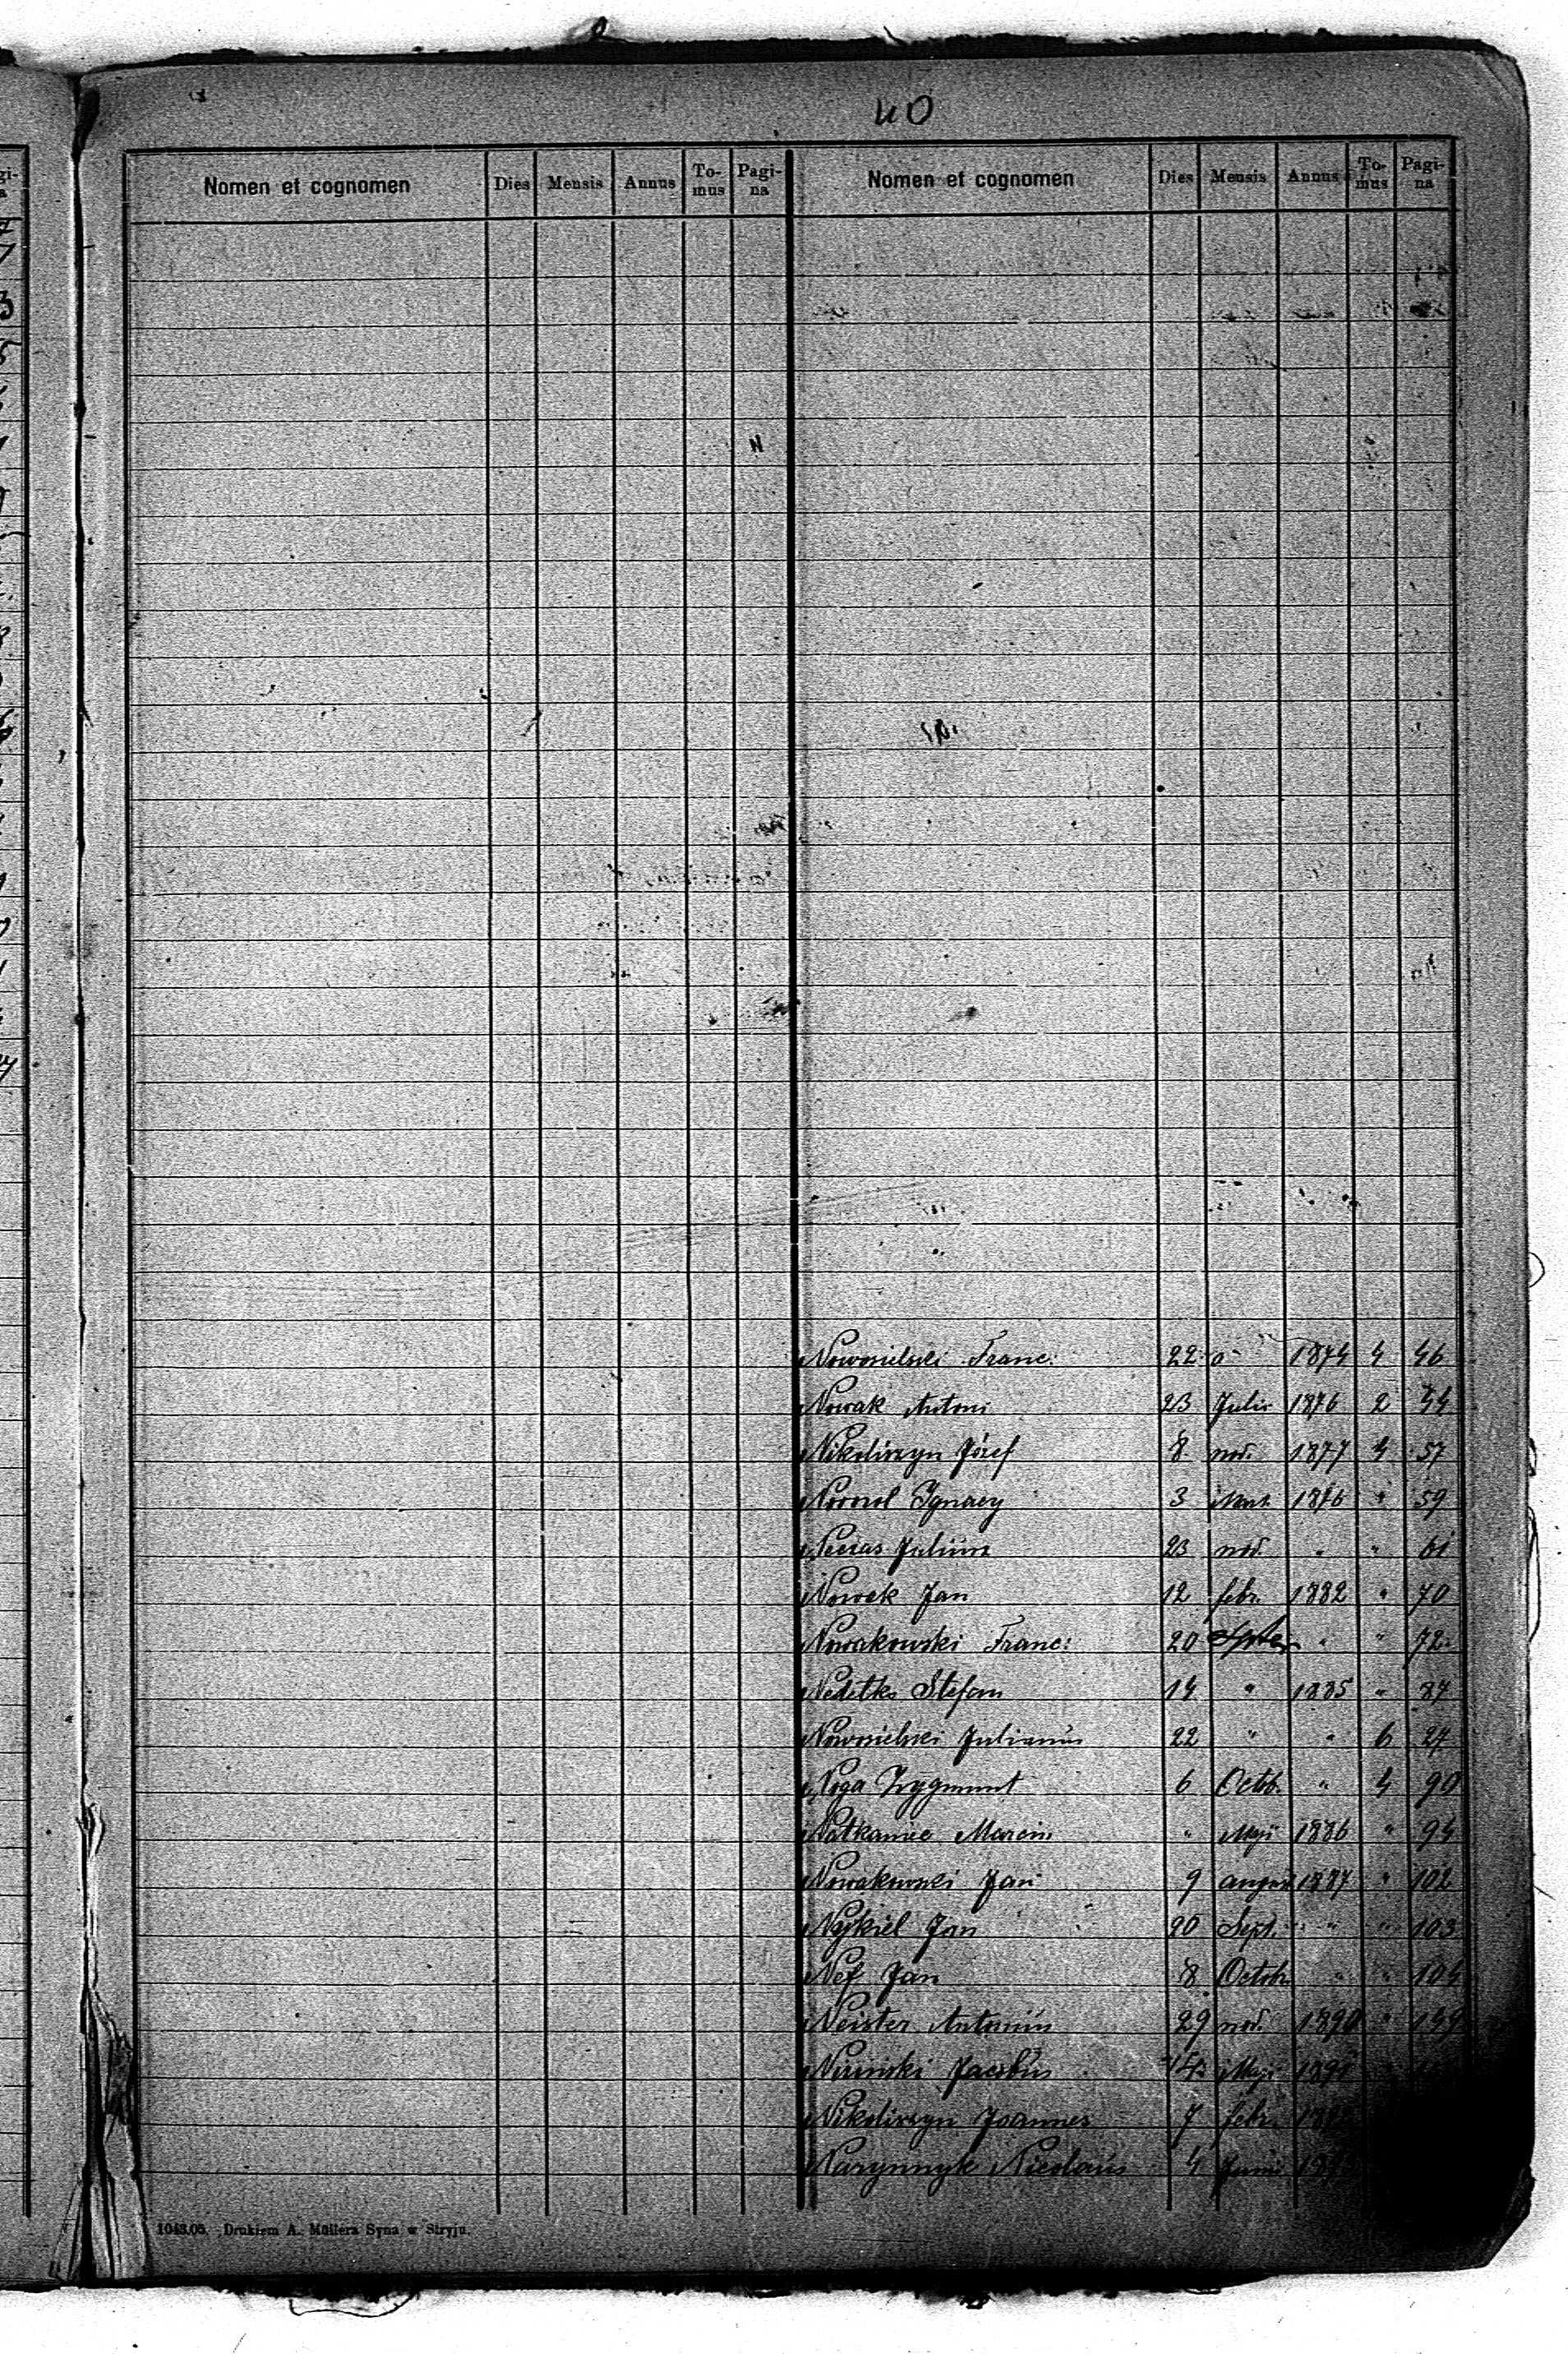 40
Nomen et cognomen Dies Mensis Annus To-mus Pagi-na Nomen et cognomen Dies Mensis Annus To-mus Pagi-na
Nowosielski Franc: 22 1874 4 46
Nowak Antoni 23 Julis 1876 2 44
Nikoliszyn Józef 8 nov. 1877 4 57
Ignacy 3 1876 " 59
Julius 23 nov. " " 61
Nowek Jan 12 febr. 1882 " 70
Nowakowski Franc: 20 " " 72
Stefan 14 " 1885 " 87
Nowosielski Julianus 22 " " 6 27
Noga Zygmunt 6 Octob. " 4 90
Natkaniec Marcin " Maji 1886 " 94
Nowakowski Jan 9 1887 " 102
Nykiel Jan 20 Sept. " " 103
Nef Jan 8 Octobr. " " 104
Neister Antonius 29 nov. 1890 "
Jacobus Maji
Nikoliszyn Joannes 7 febr.
Narynnyk Nicolaus 4 Junii
1043.05. Drukiem A. Müllera Syna w Stryju.